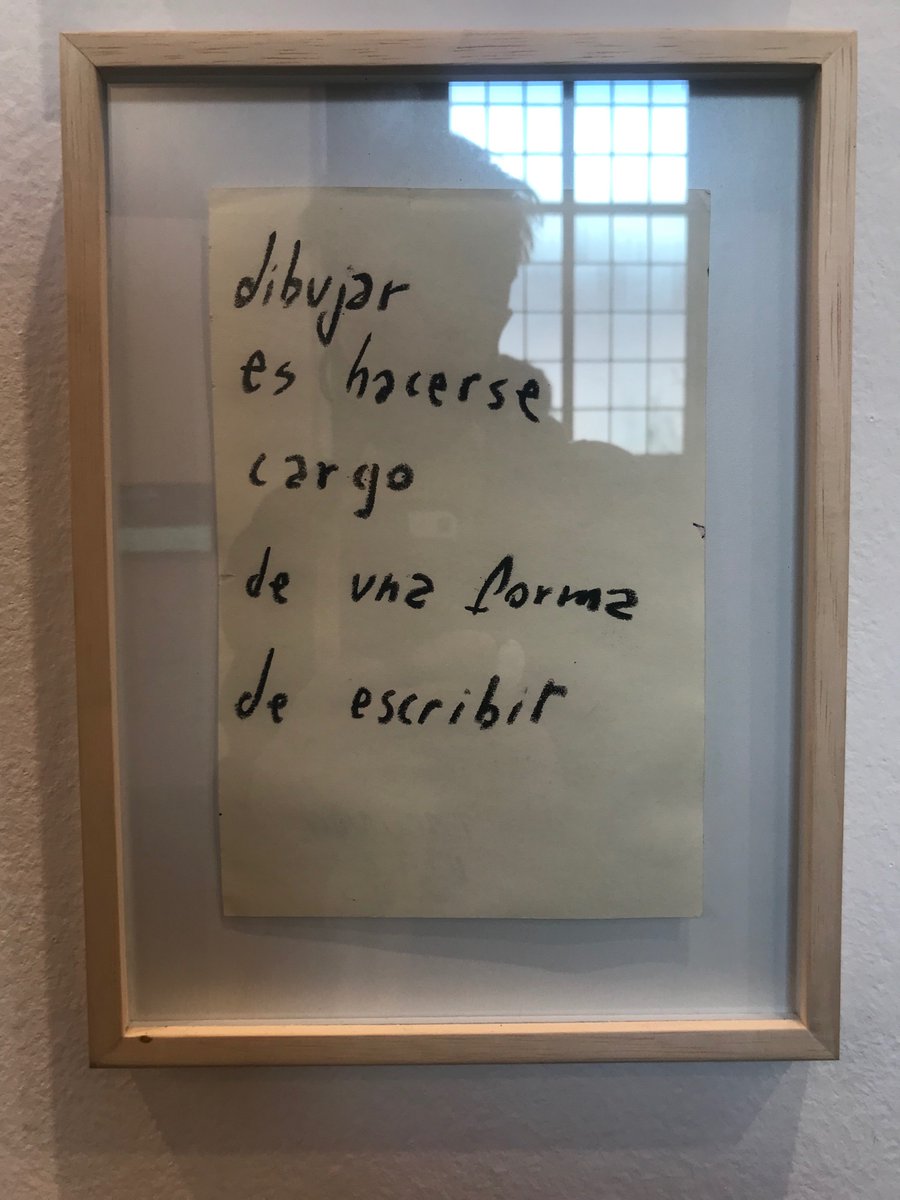 dibujar
es hacerse
cargo
de una forma
de escribir